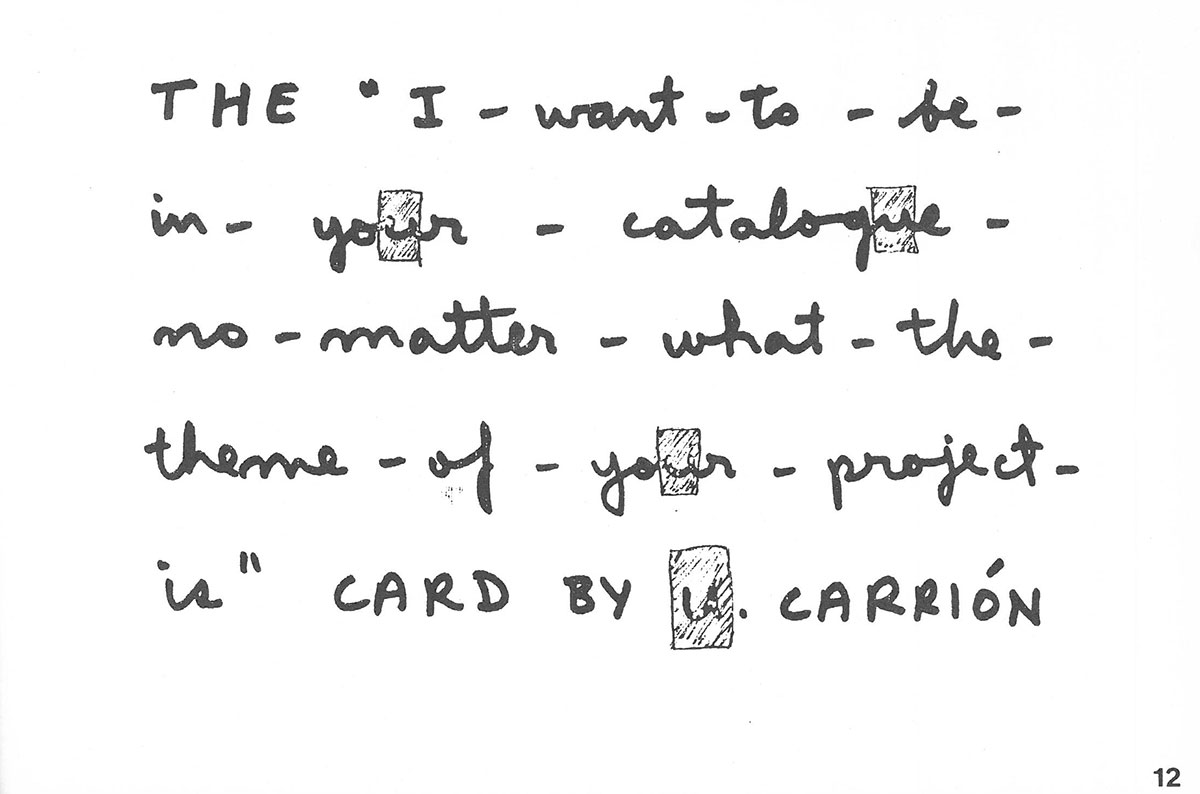 THE "I - want - to - be -
in - your - catalogue -
no - matter - what - the -
theme - of - your - project -
is" CARD BY U. CARRIÓN
12